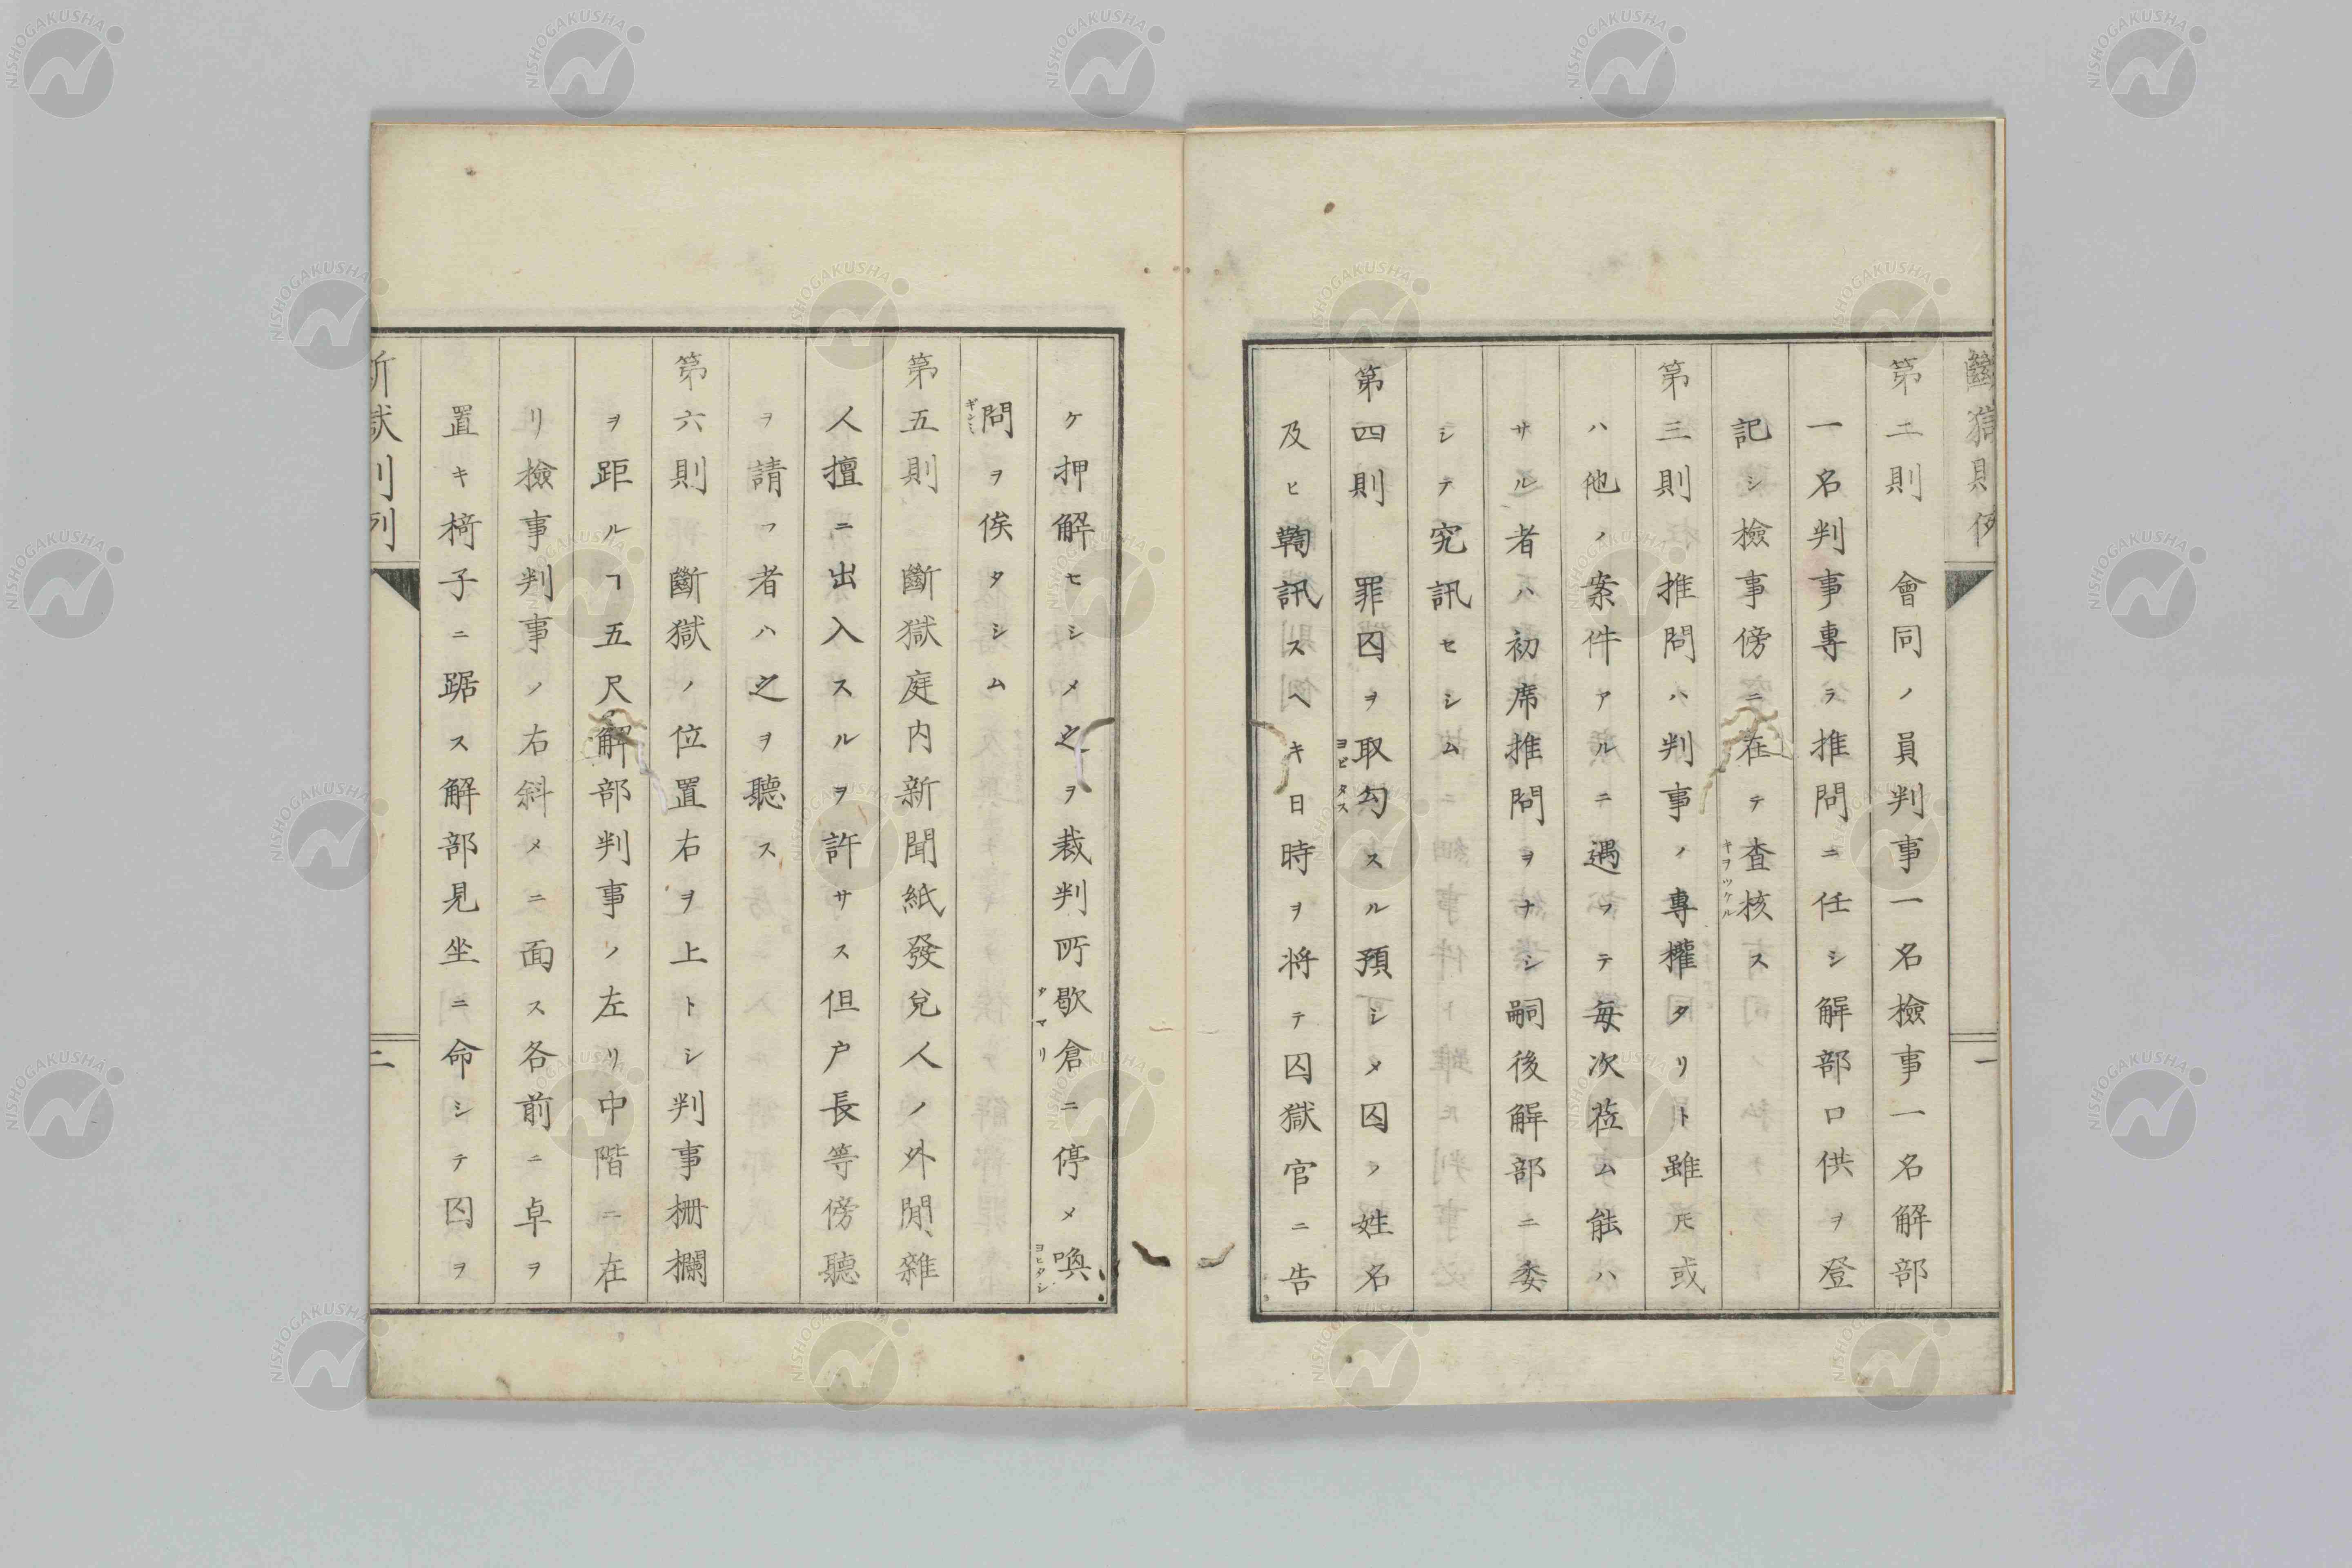 斷獄則例
一
第二則　會同ノ員判事一名檢事一名解部
一名判事專ラ推問ニ任シ解部口供ヲ登
記シ檢事傍ニ在テ査核ス
キヲツケル
第三則　推問ハ判事ノ專權タリト雖𪜈或
ハ他ノ案件アルニ遇フテ每次莅ム能ハ
サル者ハ初席推問ヲナシ嗣後解部ニ委
シテ究訊セシム
第四則　罪囚ヲ取勾スル預シメ囚ノ姓名
ヨビタス
及ヒ鞫訊スヘキ日時ヲ将テ囚獄官ニ告
ケ押解セシメ之ヲ裁判所歇倉ニ停メ喚
タマリ
ヨヒタシ
問ヲ俟タシム
ギンミ
第五則　斷獄庭内新聞紙發兌人ノ外閒雜
人擅ニ出入スルヲ許サス但戸長等傍聽
ヲ請フ者ハ之ヲ聽ス
第六則　斷獄ノ位置右ヲ上トシ判事柵欄
ヲ距ルヿ五尺解部判事ノ左リ中階ニ在
リ檢事判事ノ右斜メニ面ス各前ニ卓ヲ
置キ椅子ニ踞ス解部見坐ニ命シテ囚ヲ
斷獄則例
二
NISHOGAKUSHA